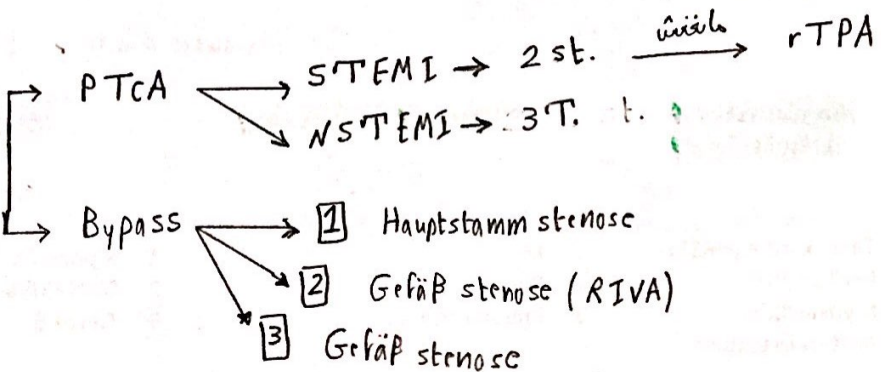 PTCA
STEMI → 2 st. → rTPA
NSTEMI → 3 T. t.
Bypass
1 Hauptstamm stenose
2 Gefäß stenose (RIVA)
3 Gefäß stenose